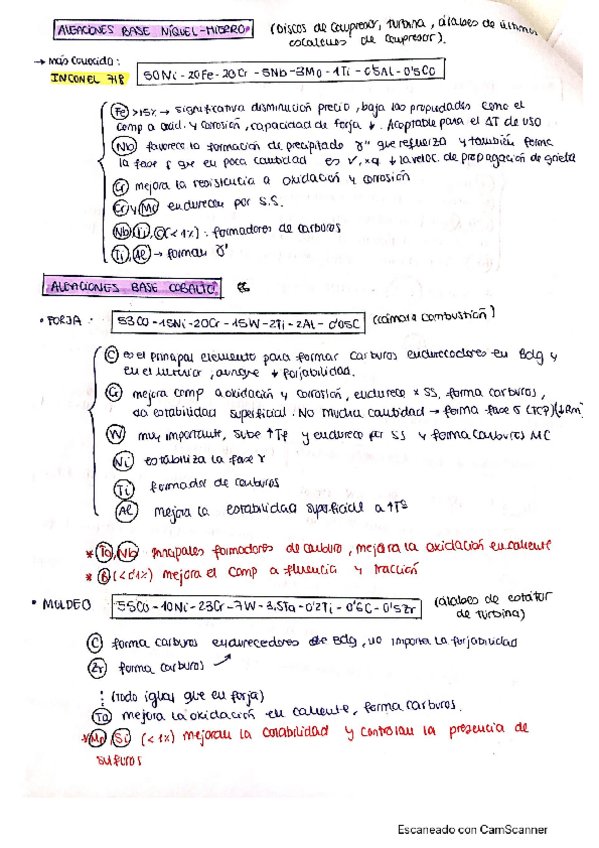 ALEACIONES BASE NÍQUEL-HIERRO (Discos de compresor, turbina, álabes de últimos
escalones de compresor).
→ más conocido:
INCONEL 718 50Ni-20Fe-20Cr-5Nb-3Mo-1Ti-0'5Al-0'5Co
Fe >15% → significativa disminución precio, baja las propiedades como el
comp a oxid. y corrosión, capacidad de forja ↓. Aceptable para el ΔT de uso
Nb favorece la formación de precipitado γ'' que refuerza y también forma
la fase δ que en poca cantidad es ✓, xq ↓ la veloc. de propagación de grieta
Cr mejora la resistencia a oxidación y corrosión
Cr y Mo endurecen por S.S.
Nb, Ti, C(<1%): formadores de carburos
Ti, Al → forman γ'
ALEACIONES BASE COBALTO
• FORJA: 53Co-15Ni-20Cr-15W-2Ti-2Al-0'05C (cámara combustión)
C es el principal elemento para formar carburos endurecedores en Bdg y
en el interior, aunque ↓ forjabilidad.
Cr mejora comp a oxidación y corrosión, endurece x SS, forma carburos,
da estabilidad superficial. No mucha cantidad → forma fase σ (TCP)(↓Rm)
W muy importante, sube ↑Tf y endurece por SS y forma carburos MC
Ni estabiliza la fase γ
Ti formador de carburos
Al mejora la estabilidad superficial a ↑Tª
* Ta, Nb principales formadores de carburo, mejora la oxidación en caliente
* B (<0'1%) mejora el comp a fluencia y tracción
• MOLDEO 55Co-10Ni-23Cr-7W-3,5Ta-0'2Ti-0'6C-0'5Zr (álabes de estátor
de turbina)
C forma carburos endurecedores de Bdg, no importa la forjabilidad
Zr forma carburos
⋮ (Todo igual que en forja)
Ta mejora la oxidación en caliente, forma carburos.
* Mn, Si (<1%) mejoran la colabilidad y controlan la presencia de
sulfuros
Escaneado con CamScanner